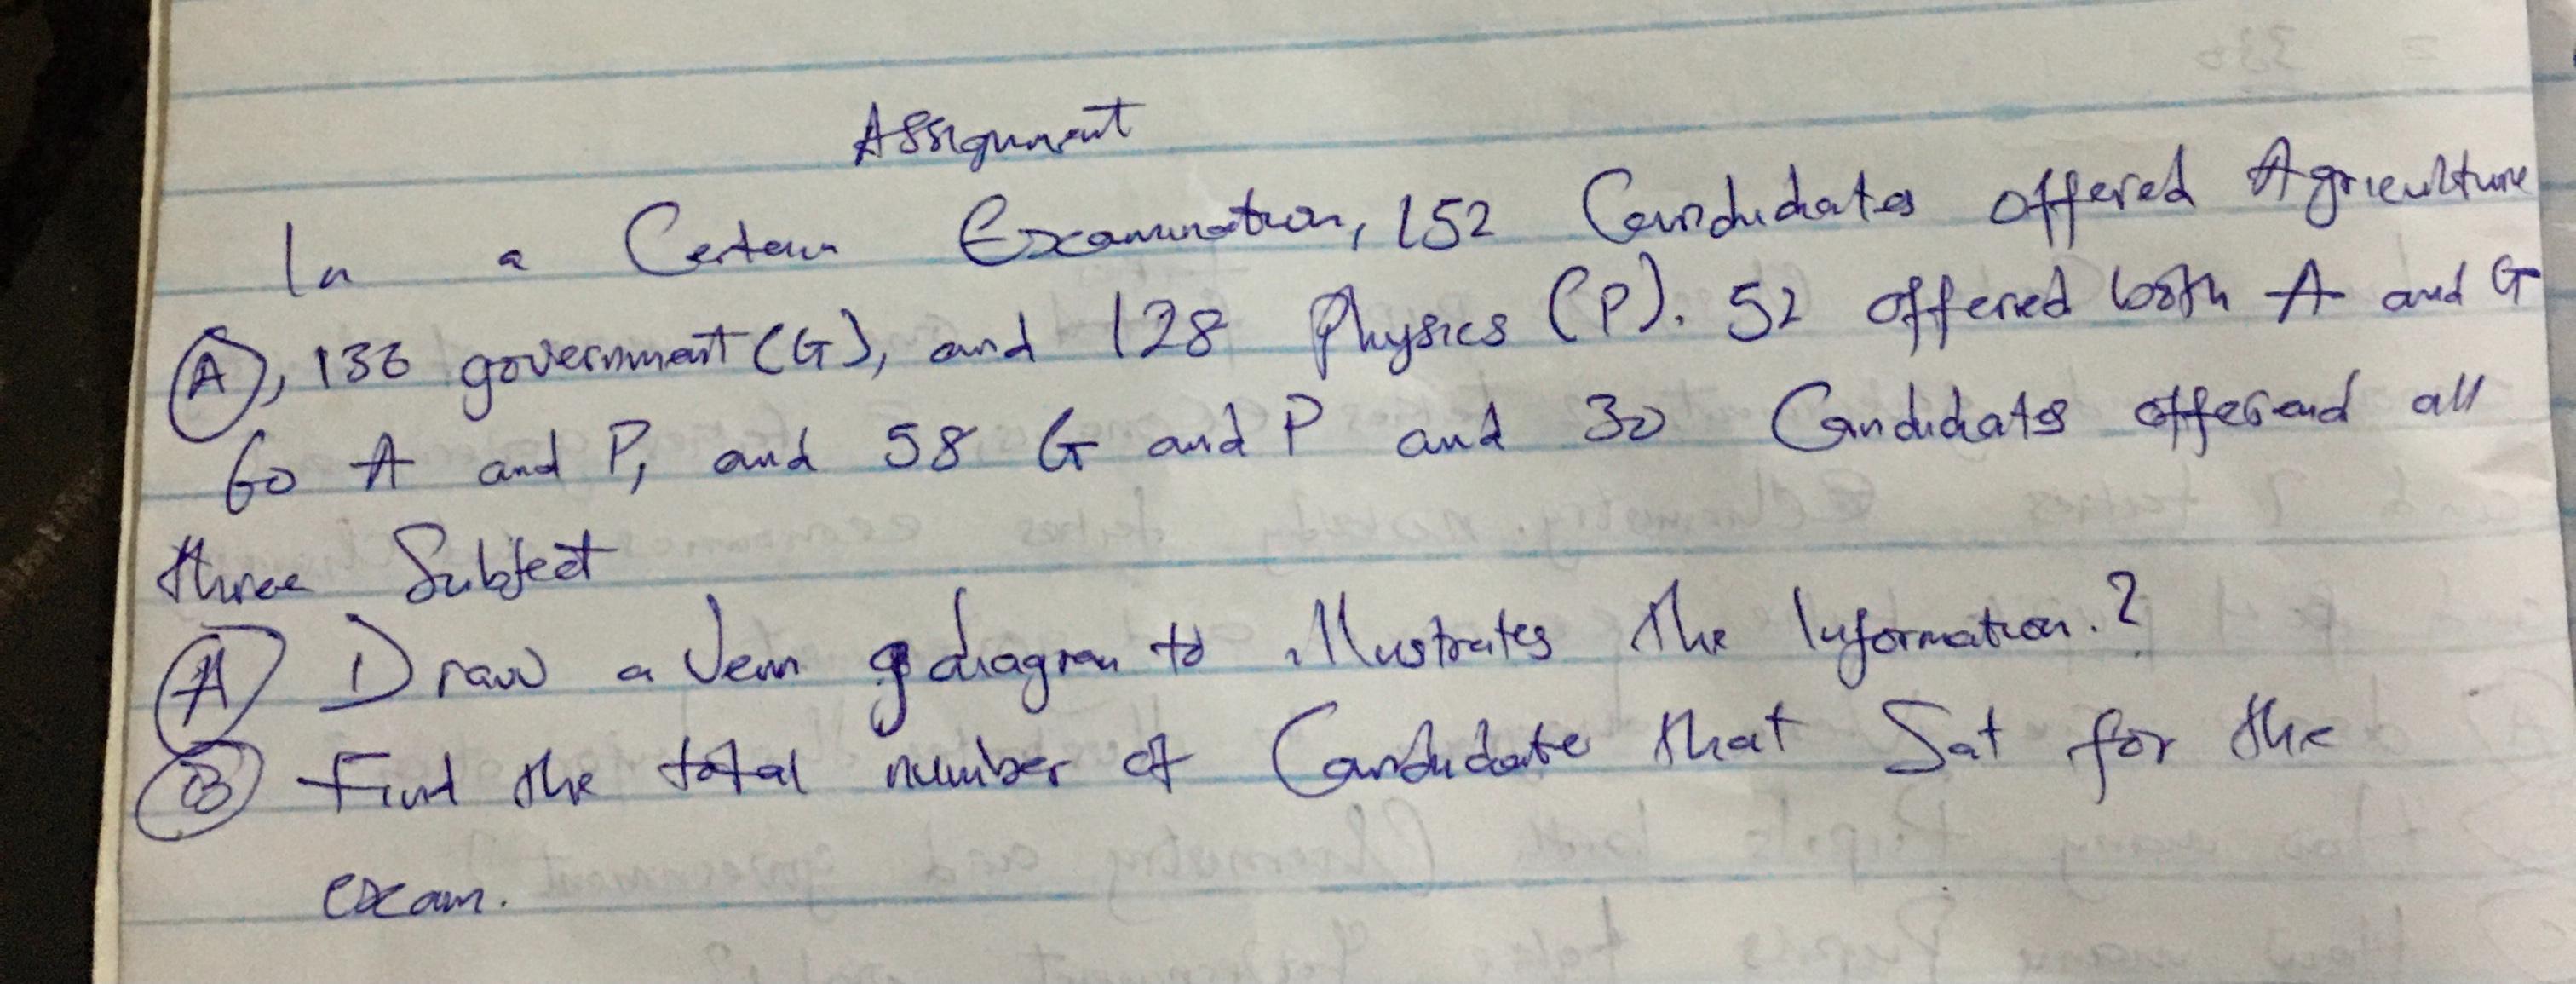 Assignment
In a Certain Examination, 152 Candidates offered Agriculture
(A), 136 government (G), and 128 Physics (P). 52 offered both A and G
60 A and P, and 58 G and P and 30 Candidates offered all
three Subject
(A) Draw a Venn diagram to illustrates the Information.?
(B) Find the total number of Candidate that Sat for the
exam.